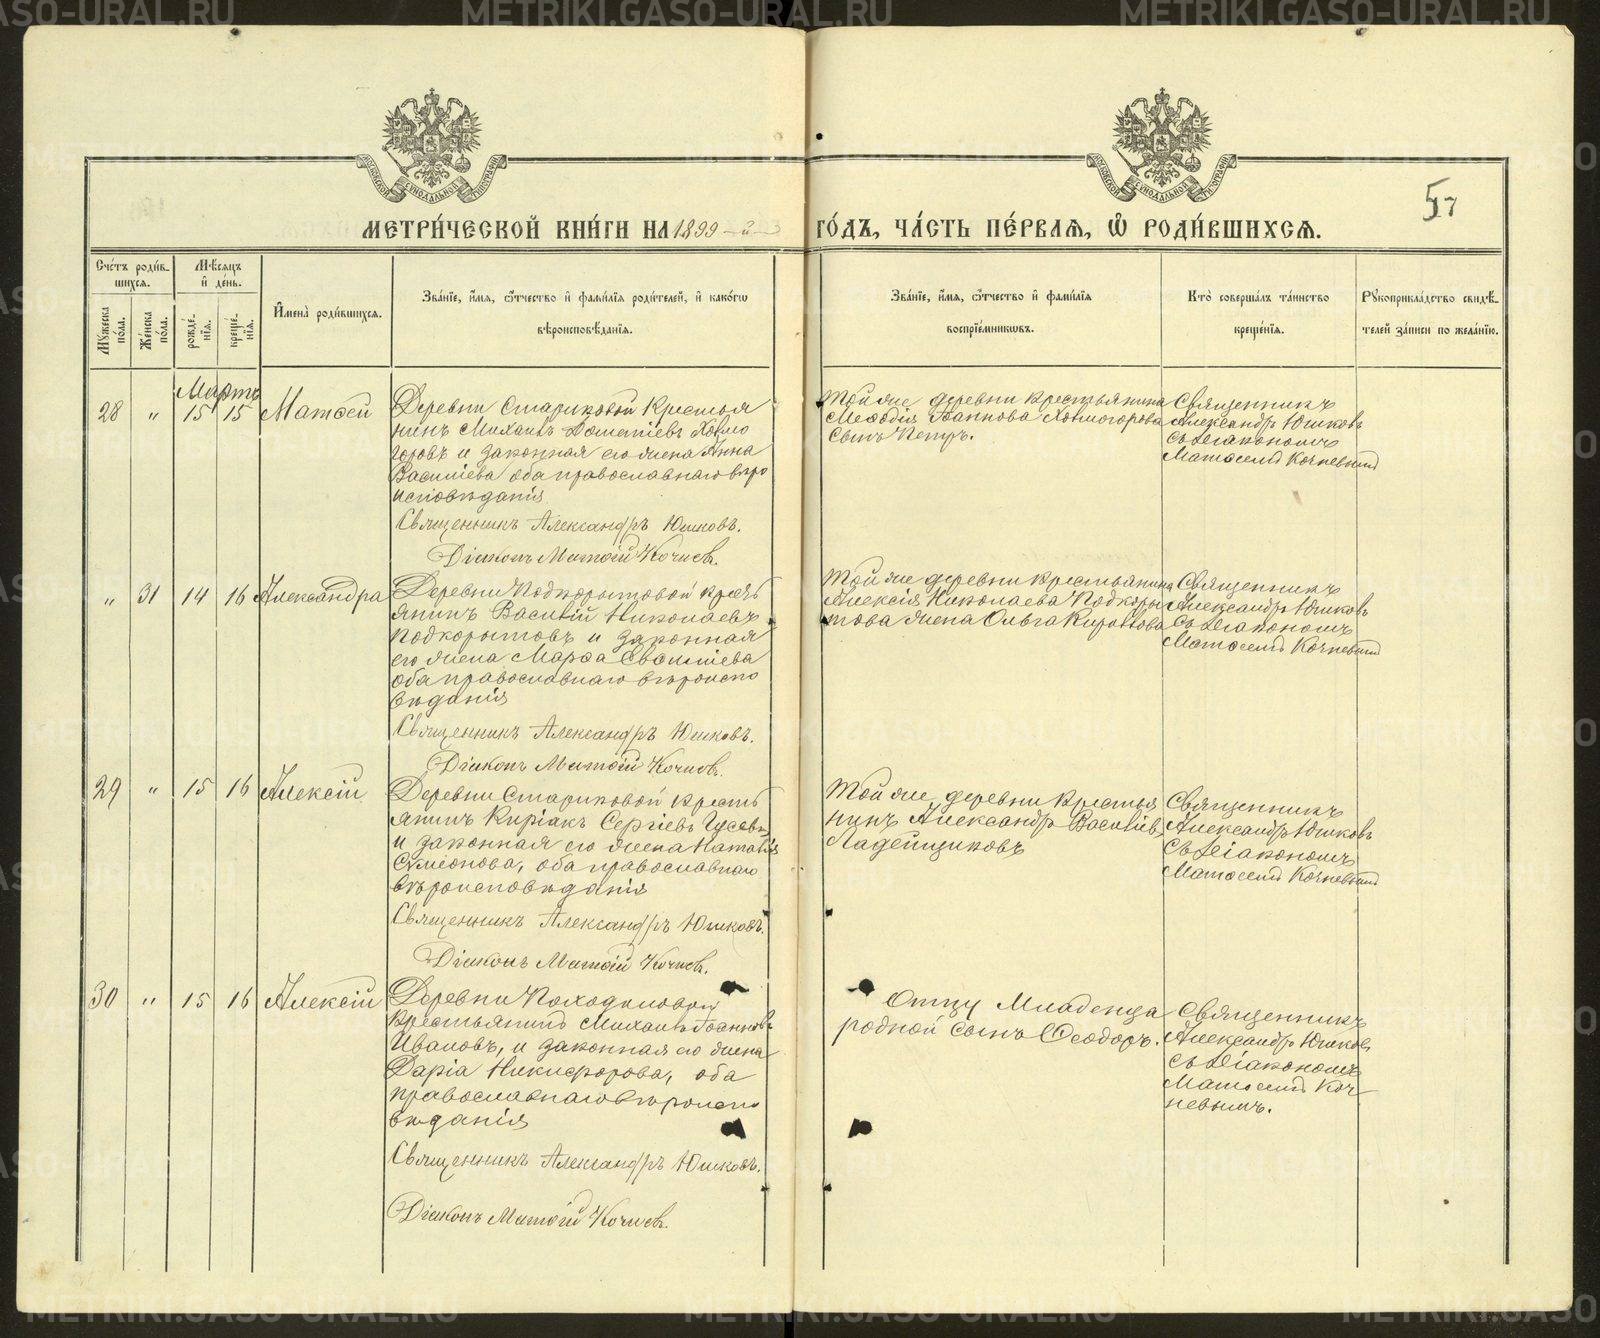 METRIKI.GASO-URAL.RU
МОСКОВСКОЙ СѴНОДАЛЬНОЙ ТИПОГРАФІИ
МОСКОВСКОЙ СѴНОДАЛЬНОЙ ТИПОГРАФІИ
57
МЕТРИ́ЧЕСКОЙ КНИ́ГИ НА 1899-й ГО́ДЪ, ЧА́СТЬ ПЕ́РВАѦ, Ѡ РОДИ́ВШИХСѦ.
Сче́тъ роди́в-
шихсѧ.
Мꙋжеска
по́ла.
Же́нска
по́ла.
Мѣ́сѧцъ
и҆ де́нь.
рожде́-
нїѧ.
креще́-
нїѧ.
И҆мена̀ роди́вшихсѧ.
Зва́нїе, и҆́мѧ, ѻ҆́тчество и҆ фамилїѧ роди́телей, и҆ како́гѡ
вѣроисповѣ́данїѧ.
Зва́нїе, и҆́мѧ, ѻ҆́тчество и҆ фами́лїѧ
воспрїе́мникѡвъ.
Кто̀ соверша́лъ та́инство
креще́нїѧ.
Рꙋкоприкла́дство свидѣ́-
телей за́писи по жела́нїю.
Мартъ
28 " 15 15 Матѳей
Деревни Стариковой Крестья
нинъ Михаилъ Дометіевъ Холмо
горовъ и законная его жена Анна
Василіева оба православнаго вѣро
исповѣданія
Священникъ Александръ Юшковъ.
Діаконъ Матѳій Кочневъ.
Той же деревни крестьянина
Меѳодія Іоаннова Холмогорова
сынъ Петръ.
Священникъ
Александръ Юшковъ
съ Діакономъ
Матѳеемъ Кочневымъ
" 31 14 16 Александра
Деревни Подкорытовой крестъ
янинъ Василій Николаевъ
Подкорытовъ и законная
его жена Марѳа
оба православнаго вѣроиспо
вѣданія
Священникъ Александръ Юшковъ.
Діаконъ Матѳій Кочневъ.
Той же деревни крестьянина
Алексія Николаева Подкоры
това жена Ольга
Священникъ
Александръ Юшковъ
съ Діакономъ
Матѳеемъ Кочневымъ
29 " 15 16 Алексій
Деревни Стариковой кресть
янинъ Киріакъ Сергіевъ Гусевъ
и законная его жена Наталія
Сѵмеонова, оба православнаго
вѣроисповѣданія
Священникъ Александръ Юшковъ.
Діаконъ Матѳій Кочневъ.
Той же деревни крестья
нинъ Александръ Василіевъ
Ладейщиковъ
Священникъ
Александръ Юшковъ
съ Діакономъ
Матѳеемъ Кочневымъ
30 " 15 16 Алексій
Деревни Походиловой
крестьянинъ Михаилъ Іоанновъ
Ивановъ, и законная его жена
Дарія Никифорова, оба
православнаго вѣроиспо
вѣданія
Священникъ Александръ Юшковъ.
Діаконъ Матѳій Кочневъ.
Отцу Младенца
родной сынъ Ѳеодоръ.
Священникъ
Александръ Юшковъ
съ Діакономъ
Матѳеемъ Коч
невымъ.